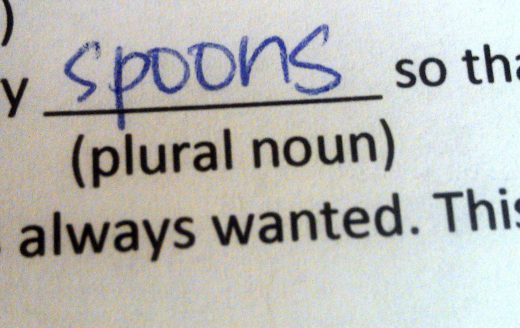 )
y spoons so tha
(plural noun)
always wanted. This